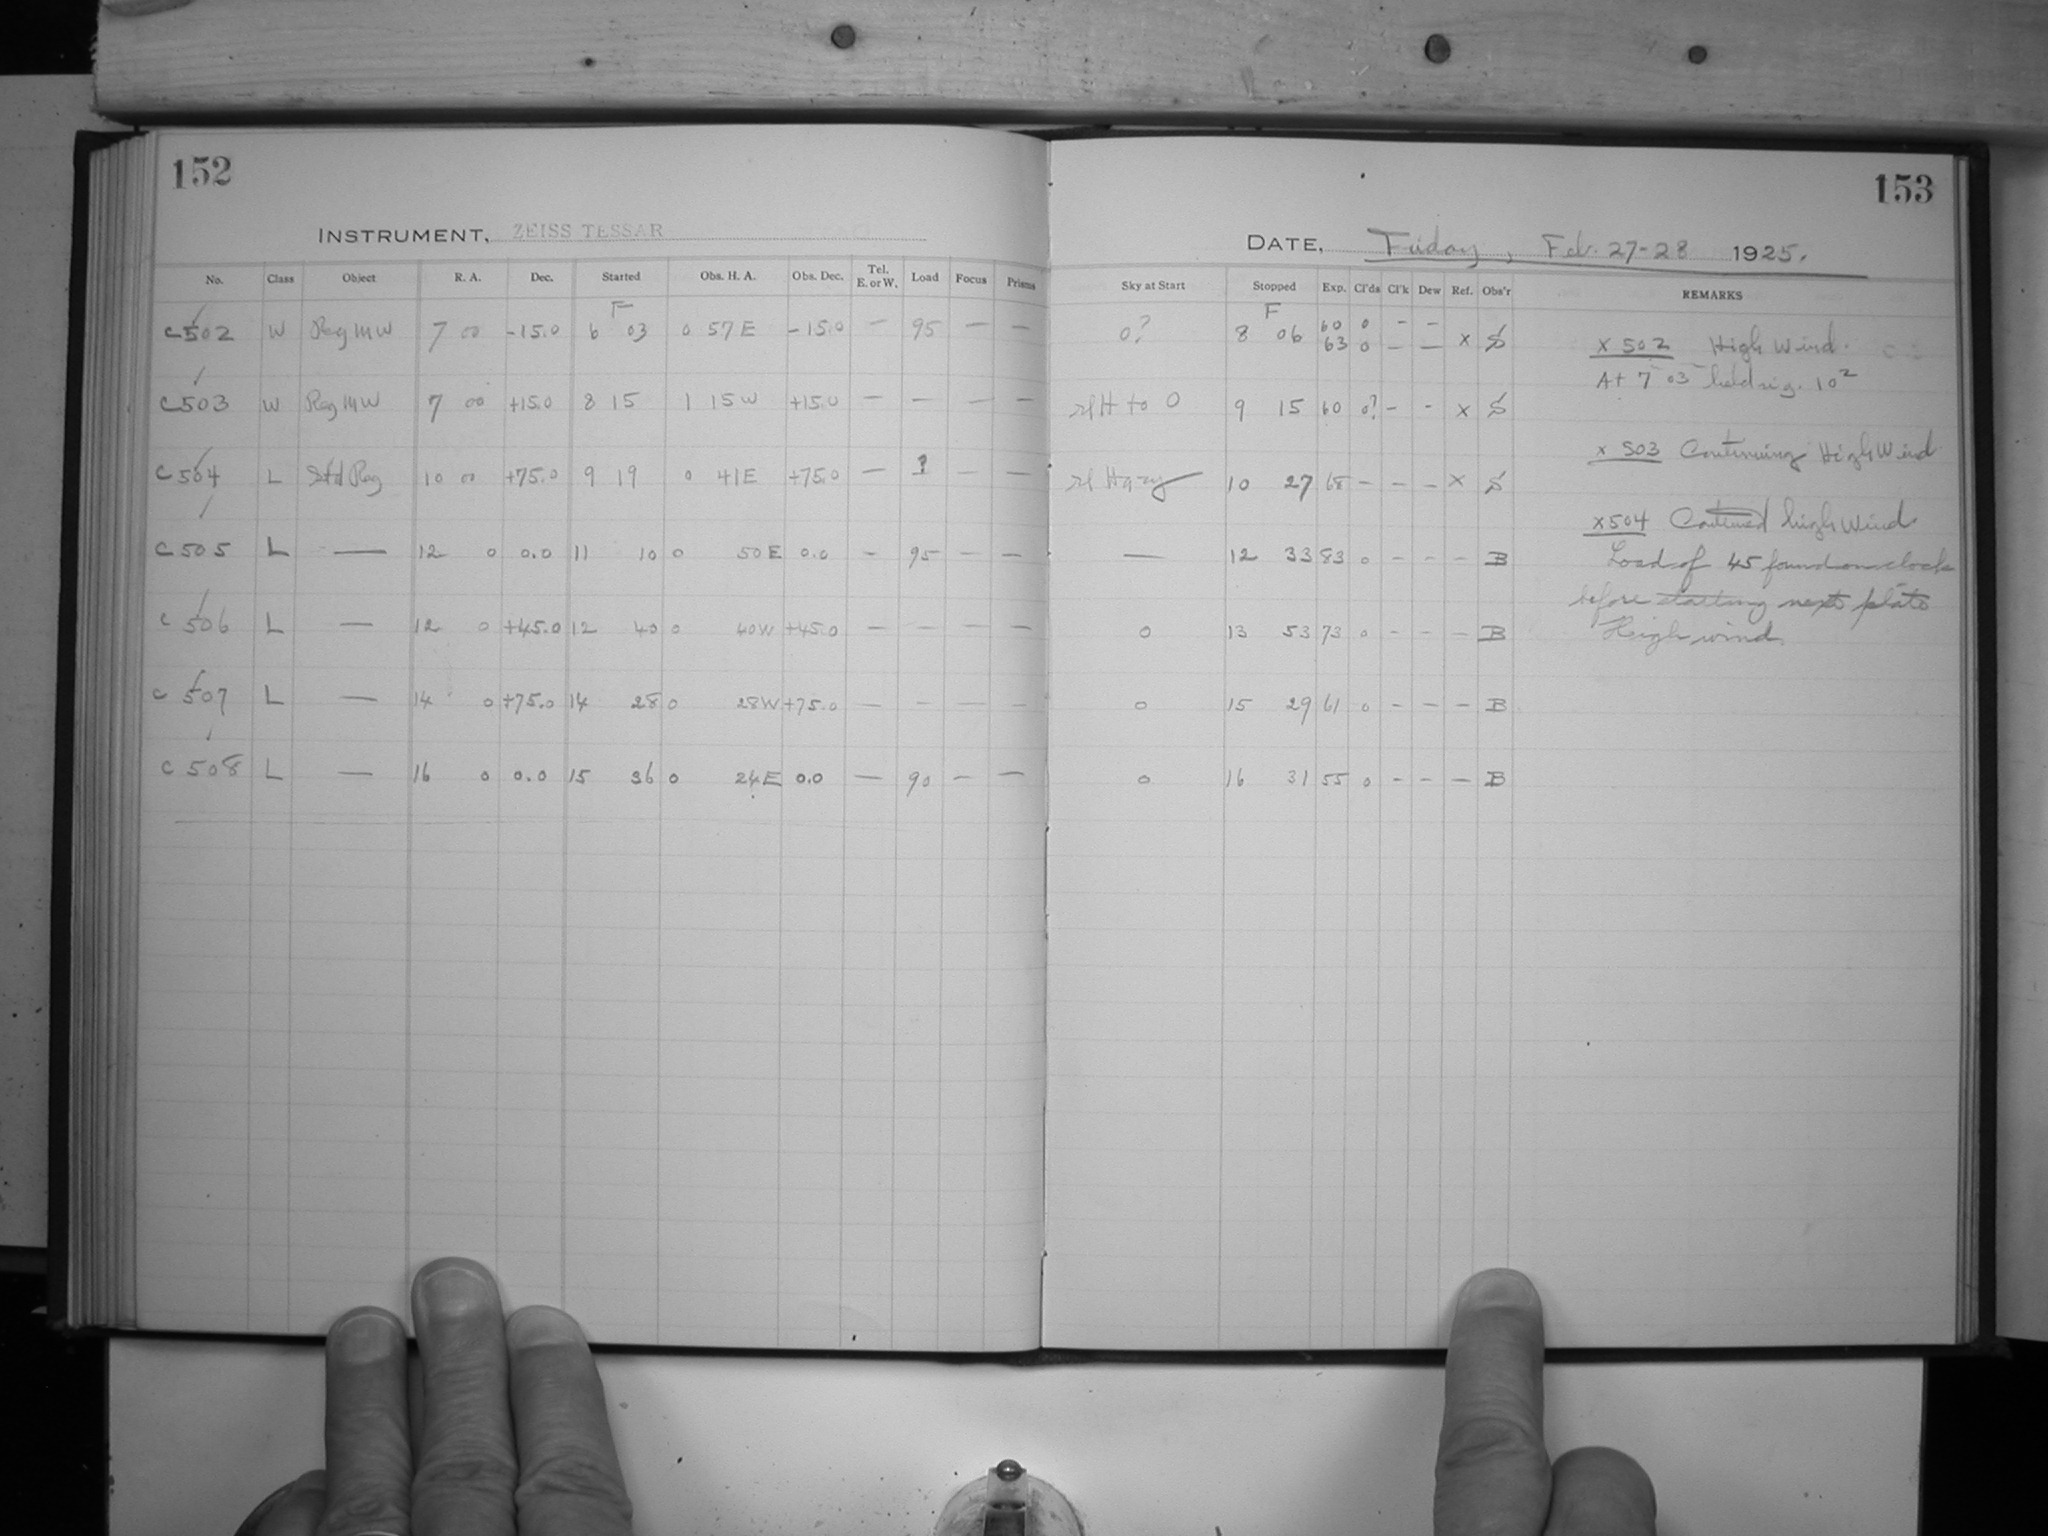 152
INSTRUMENT, ZEISS TESSAR
No. Class Object R. A. Dec. Started Obs. H. A. Obs. Dec. Tel. E. or W. Load Focus Prisms
F
C502 W Reg MW 7 00 -15.0 6 03 0 57 E -15.0 — 95 — —
C503 W Reg MW 7 00 +15.0 8 15 1 15 W +15.0 — — — —
C504 L Std Reg 10 00 +75.0 9 19 0 41E +75.0 — ? — —
C505 L — 12 0 0.0 11 10 0 50 E 0.0 - 95 — —
C506 L — 12 0 +45.0 12 40 0 40W +45.0 — — — —
C507 L — 14 0 +75.0 14 28 0 28W +75.0 — - — —
C508 L — 16 0 0.0 15 36 0 24E 0.0 — 90 — —
153
DATE, Friday, Feb. 27-28 1925.
Sky at Start Stopped Exp. Cl'ds Cl'k Dew Ref. Obs'r REMARKS
F
0? 8 06 60 0 - —
63 0 — — x S
sl H to 0 9 15 60 0? - - x S
sl Hazy 10 27 68 — - - x S
— 12 33 83 0 - - - B
0 13 53 73 0 - - - B
0 15 29 61 0 - — — B
0 16 31 55 0 - - — B
x 502 High Wind.
At 7 03 10²
x 503 Continuing High Wind
x504 Continued high Wind
Load of 45 found on clock
before starting next plate
High wind.